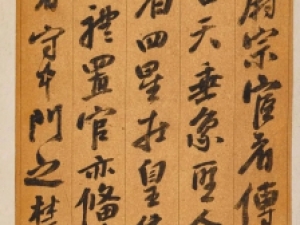 蔚宗宦者傳
曰天垂象聖
者四星在皇位
禮置官亦備
者守中門之禁